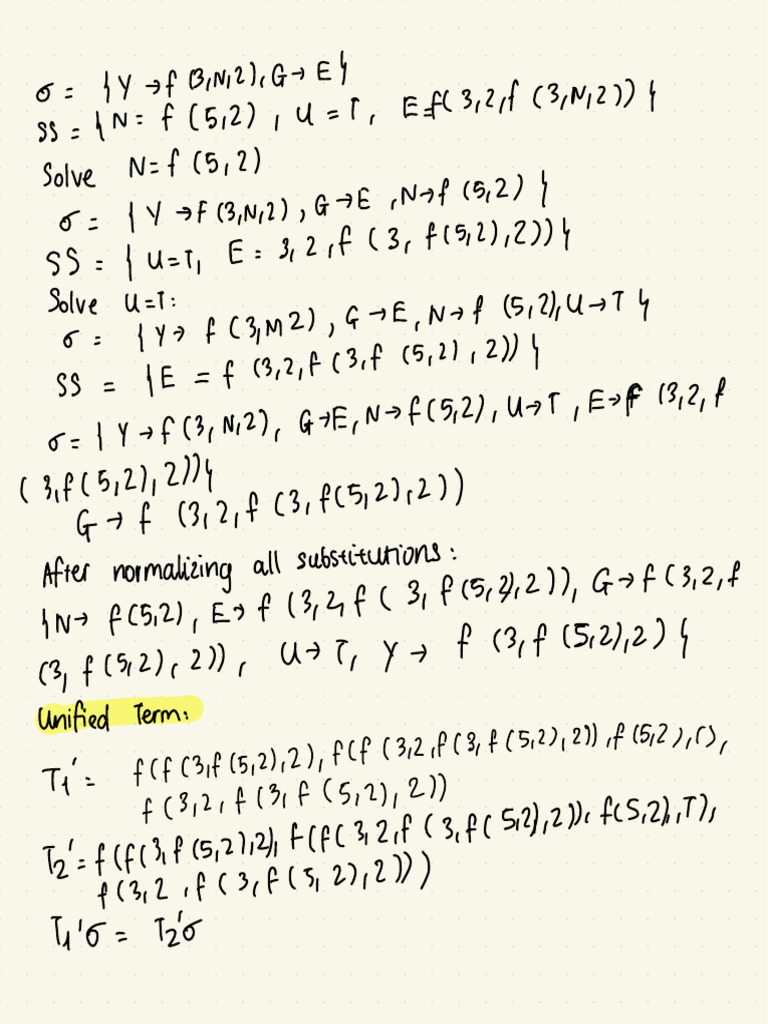 σ = {Y → f (3,N,2), G → E}
SS = {N = f (5,2), U = T, E = f( 3,2,f (3,N,2)) }
Solve N = f (5,2)
σ = {Y → f (3,N,2), G → E, N → f (5,2) }
SS = { U = T, E = 3, 2, f ( 3, f(5,2),2)) }
Solve U = T:
σ = {Y → f (3,N,2), G → E, N → f (5,2), U → T }
SS = {E = f (3,2,f (3,f (5,2), 2)) }
σ = { Y → f (3, N,2), G → E, N → f (5,2), U → T, E → f (3,2, f
( 3,f(5,2), 2))}
G → f (3,2,f (3, f(5,2),2))
After normalizing all substitutions:
{N → f(5,2), E → f (3,2, f ( 3, f(5,2),2)), G → f (3,2, f
(3, f(5,2), 2)), U → T, Y → f (3,f (5,2),2) }
Unified Term:
T₁' = f(f (3,f(5,2),2), f(f (3,2,f(3, f(5,2), 2)), f(5,2), U),
f (3,2, f (3, f (5,2), 2))
T₂' = f(f(3,f(5,2),2), f(f( 3,2,f ( 3,f( 5,2),2)), f(5,2),T),
f(3,2 ,f ( 3,f(5, 2),2)))
T₁'σ = T₂'σ